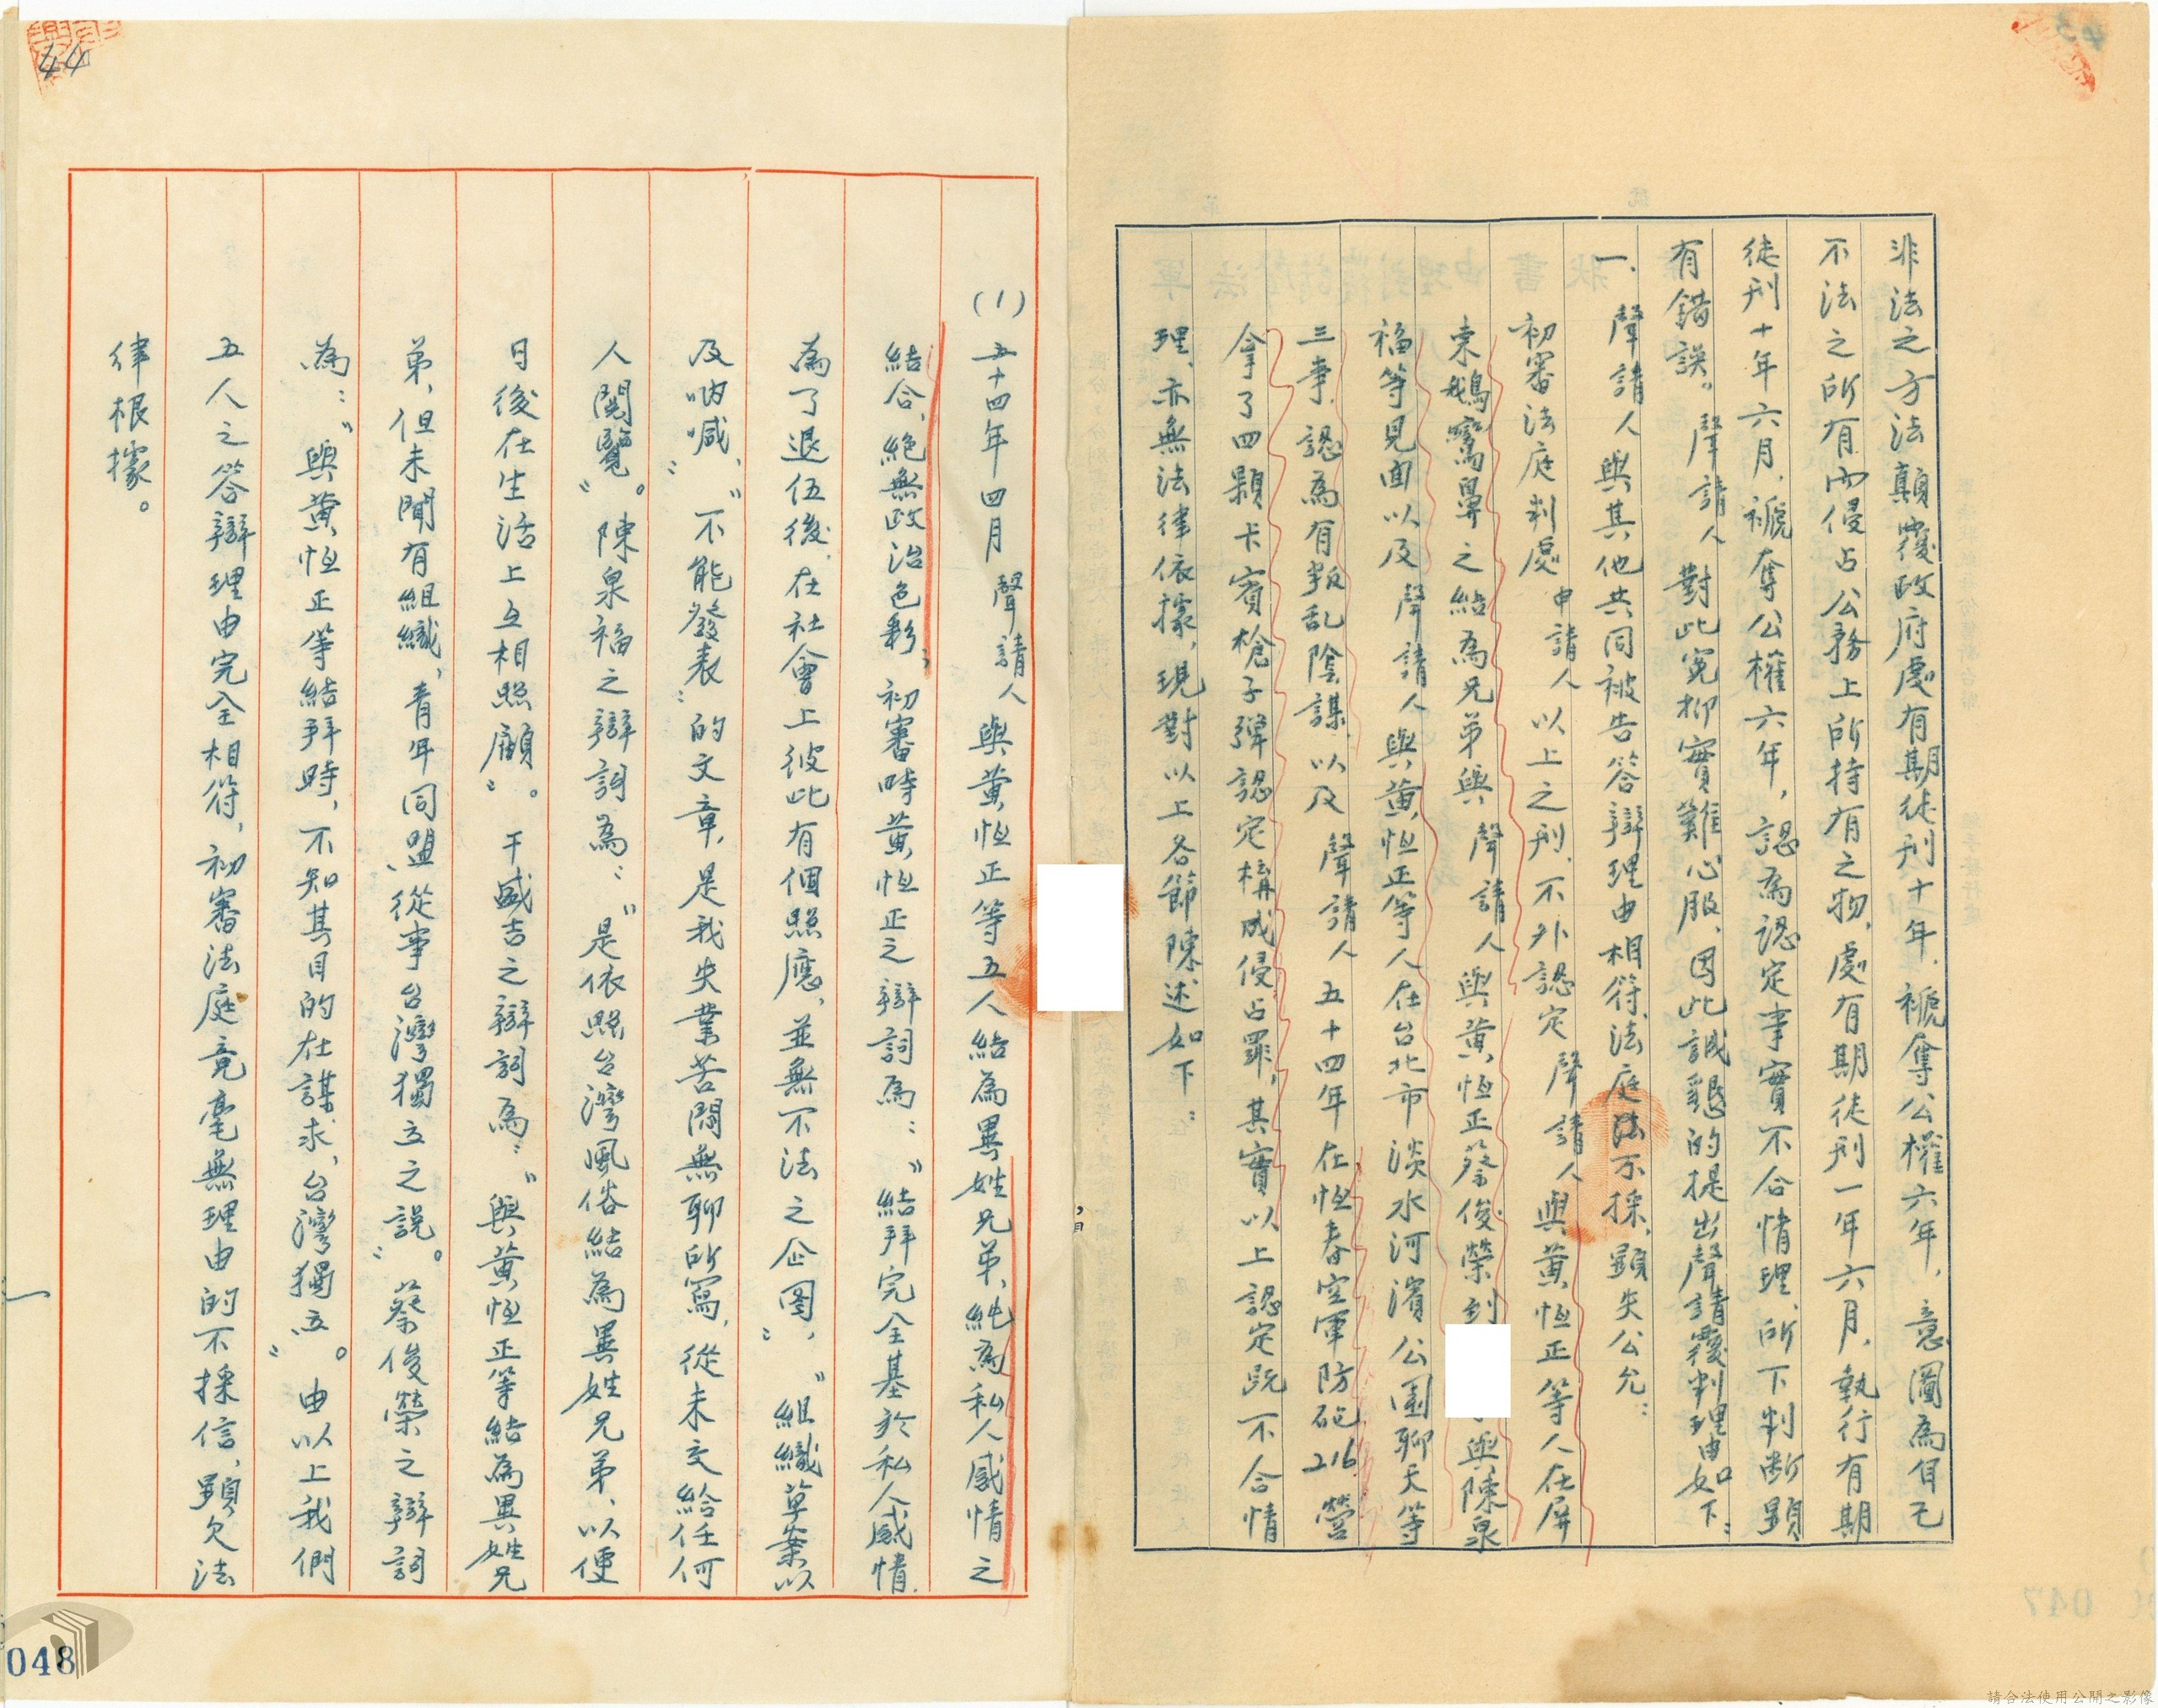 非法之方法顛覆政府處有期徒刑十年，褫奪公權六年，意圖為自己
不法之所有而侵占公務上所持有之物，處有期徒刑一年六月，執行有期
徒刑十年六月，褫奪公權六年，認為認定事實不合情理，所下判斷顯
有錯誤。聲請人對此冤抑實難心服，因此誠懇的提出聲請覆判理由如下：
一、聲請人與其他共同被告答辯理由相符，法庭法不採，顯失公允：
初審法庭判處申請人以上之刑，不外認定聲請人與黃恒正等人在屏
東鵝鸞鼻之結為兄弟與聲請人與黃恒正蔡俊榮到 與陳泉
福等見面以及聲請人與黃恒正等人在台北市淡水河濱公園聊天等
三事，認為有叛乱陰謀，以及聲請人五十四年在恒春空軍防砲216營
拿了四顆卡賓槍子彈認定構成侵占罪，其實以上認定既不合情
理，亦無法律依據，現對以上各節陳述如下：
(1)五十四年四月聲請人與黃恒正等五人結為異姓兄弟，純為私人感情之
結合，絕無政治色彩，初審時黃恒正之辯詞為：〝結拜完全基於私人感情，
為了退伍後，在社會上彼此有個照應，並無不法之企圖〞，〝組織草案以
及吶喊〞，〝不能發表〞的文章，是我失業苦悶無聊所寫，從未交給任何
人閱覽〞。陳泉福之辯詞為：〝是依照台灣風俗結為異姓兄弟，以便
日後在生活上互相照顧〞。干盛吉之辯詞為：〝與黃恒正等結為異姓兄
弟，但未聞有組織、青年同盟、從事台灣獨立之說〞。蔡俊榮之辯詞
為：〝與黃恒正等結拜時，不知其目的在謀求、台灣獨立〞。由以上我們
五人之答辯理由完全相符，初審法庭竟毫無理由的不採信，顯欠法
律根據。
44
43
048
047
請合法使用公開之影像